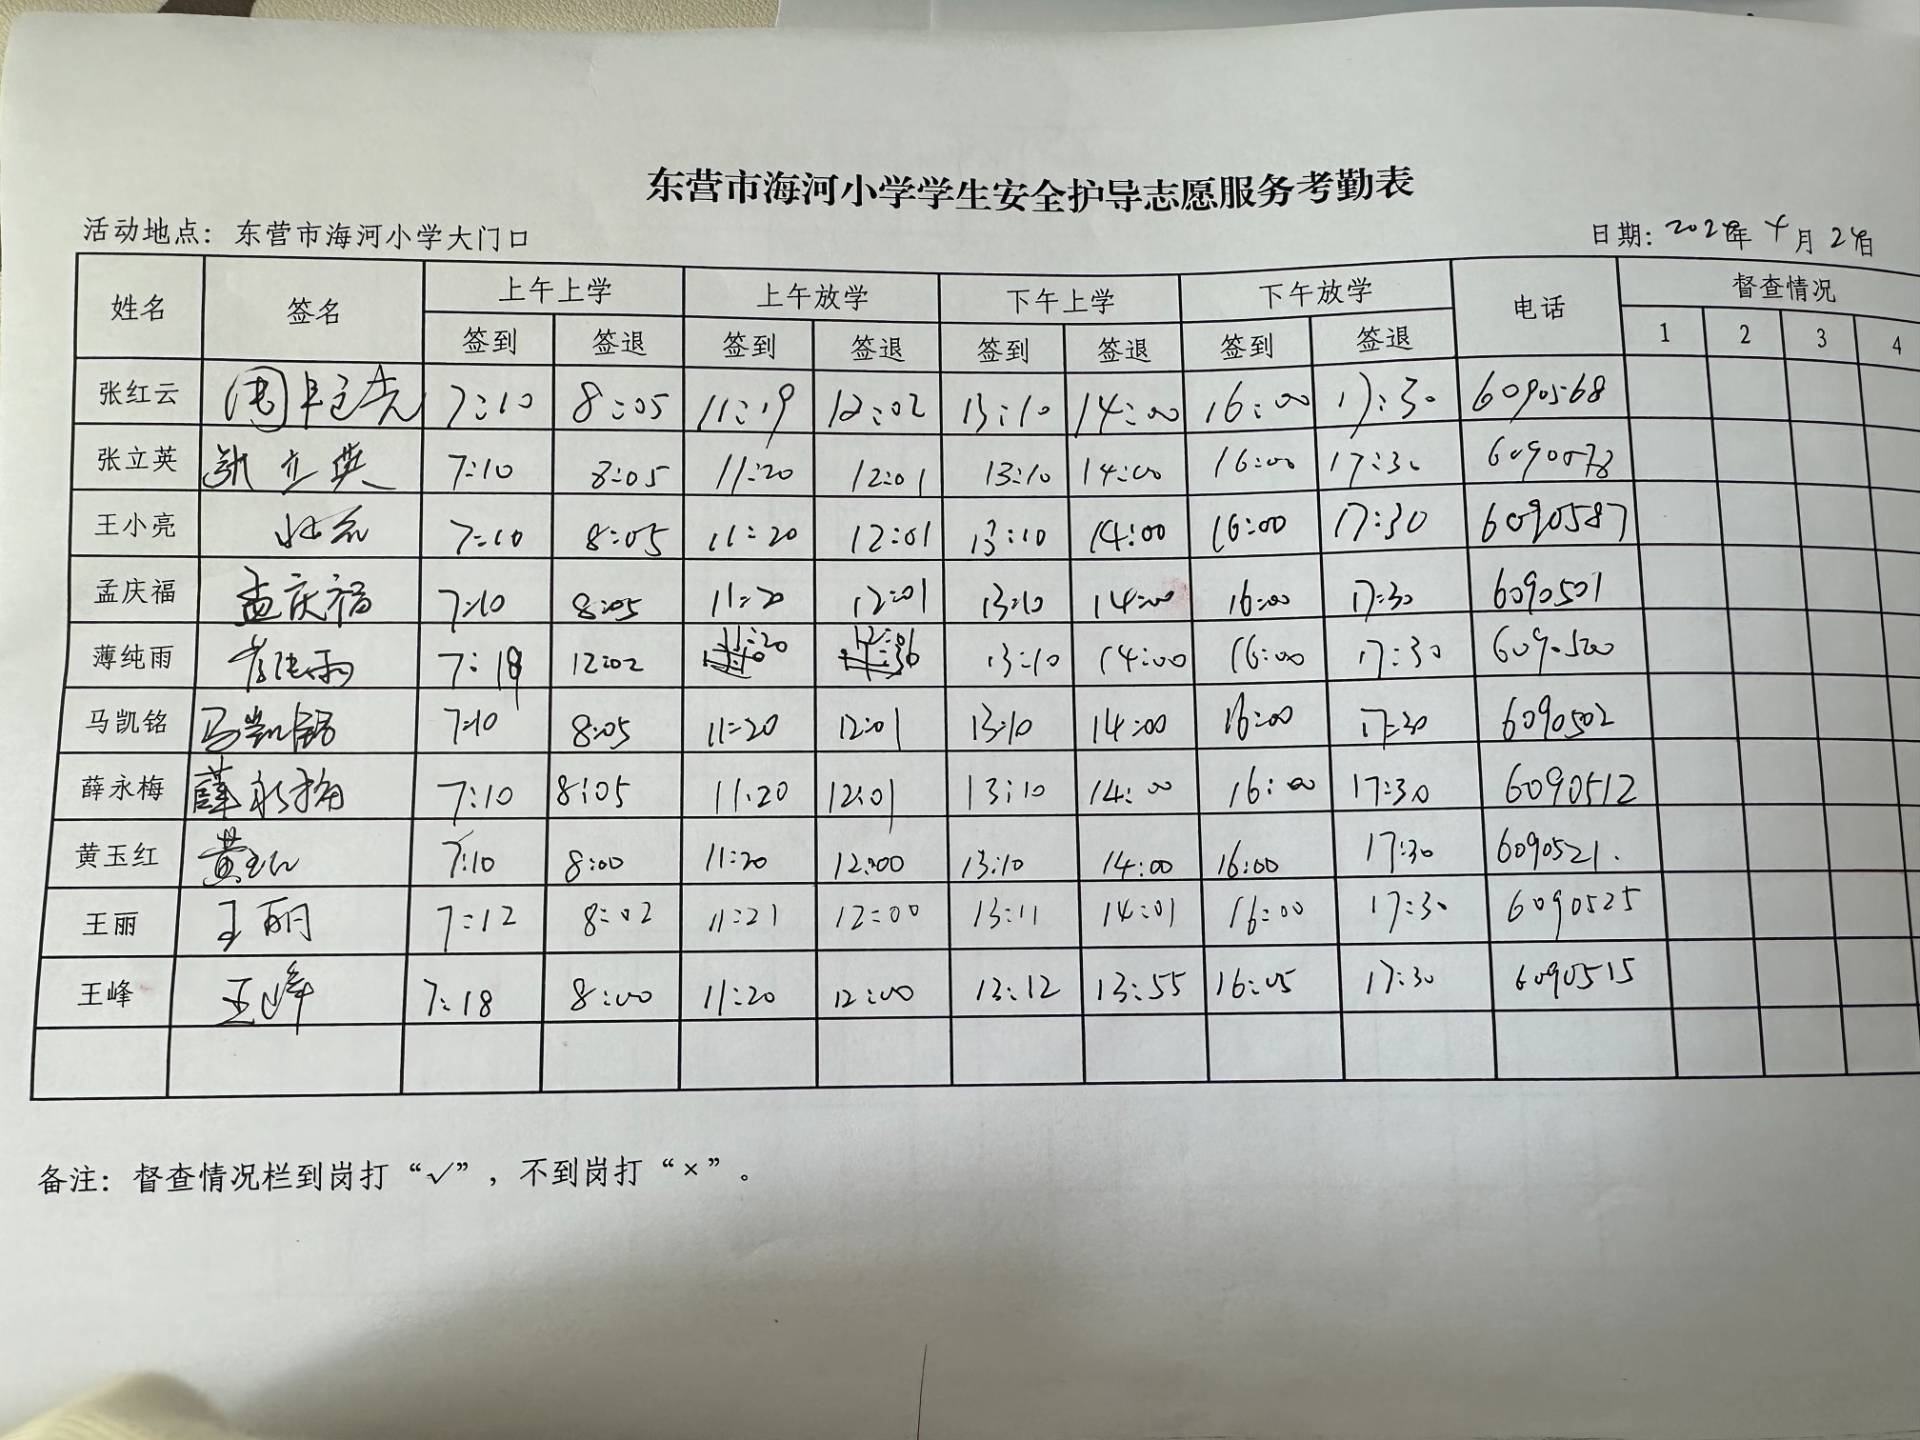 东营市海河小学学生安全护导志愿服务考勤表
活动地点：东营市海河小学大门口 日期：202 年 4月 2 日
姓名 签名 上午上学 上午放学 下午上学 下午放学 电话 督查情况
签到 签退 签到 签退 签到 签退 签到 签退 1 2 3 4
张红云 7:10 8:05 11:19 12:02 13:10 14:00 16:00 17:30 6090568
张立英 张立英 7:10 8:05 11:20 12:01 13:10 14:00 16:00 17:30 6090578
王小亮 7:10 8:05 11:20 12:01 13:10 14:00 16:00 17:30 6090587
孟庆福 孟庆福 7:10 8:05 11:20 12:01 13:10 14:00 16:00 17:30 6090501
薄纯雨 薄纯雨 7:18 12:02 11:20 12:01 13:10 14:00 16:00 17:30 6090500
马凯铭 马凯铭 7:10 8:05 11:20 12:01 13:10 14:00 16:00 17:30 6090502
薛永梅 薛永梅 7:10 8:05 11:20 12:01 13:10 14:00 16:00 17:30 6090512
黄玉红 黄玉红 7:10 8:00 11:20 12:00 13:10 14:00 16:00 17:30 6090521.
王丽 王丽 7:12 8:02 11:21 12:00 13:11 14:01 16:00 17:30 6090525
王峰 王峰 7:18 8:00 11:20 12:00 13:12 13:55 16:05 17:30 6090515
备注：督查情况栏到岗打“√”，不到岗打“×”。